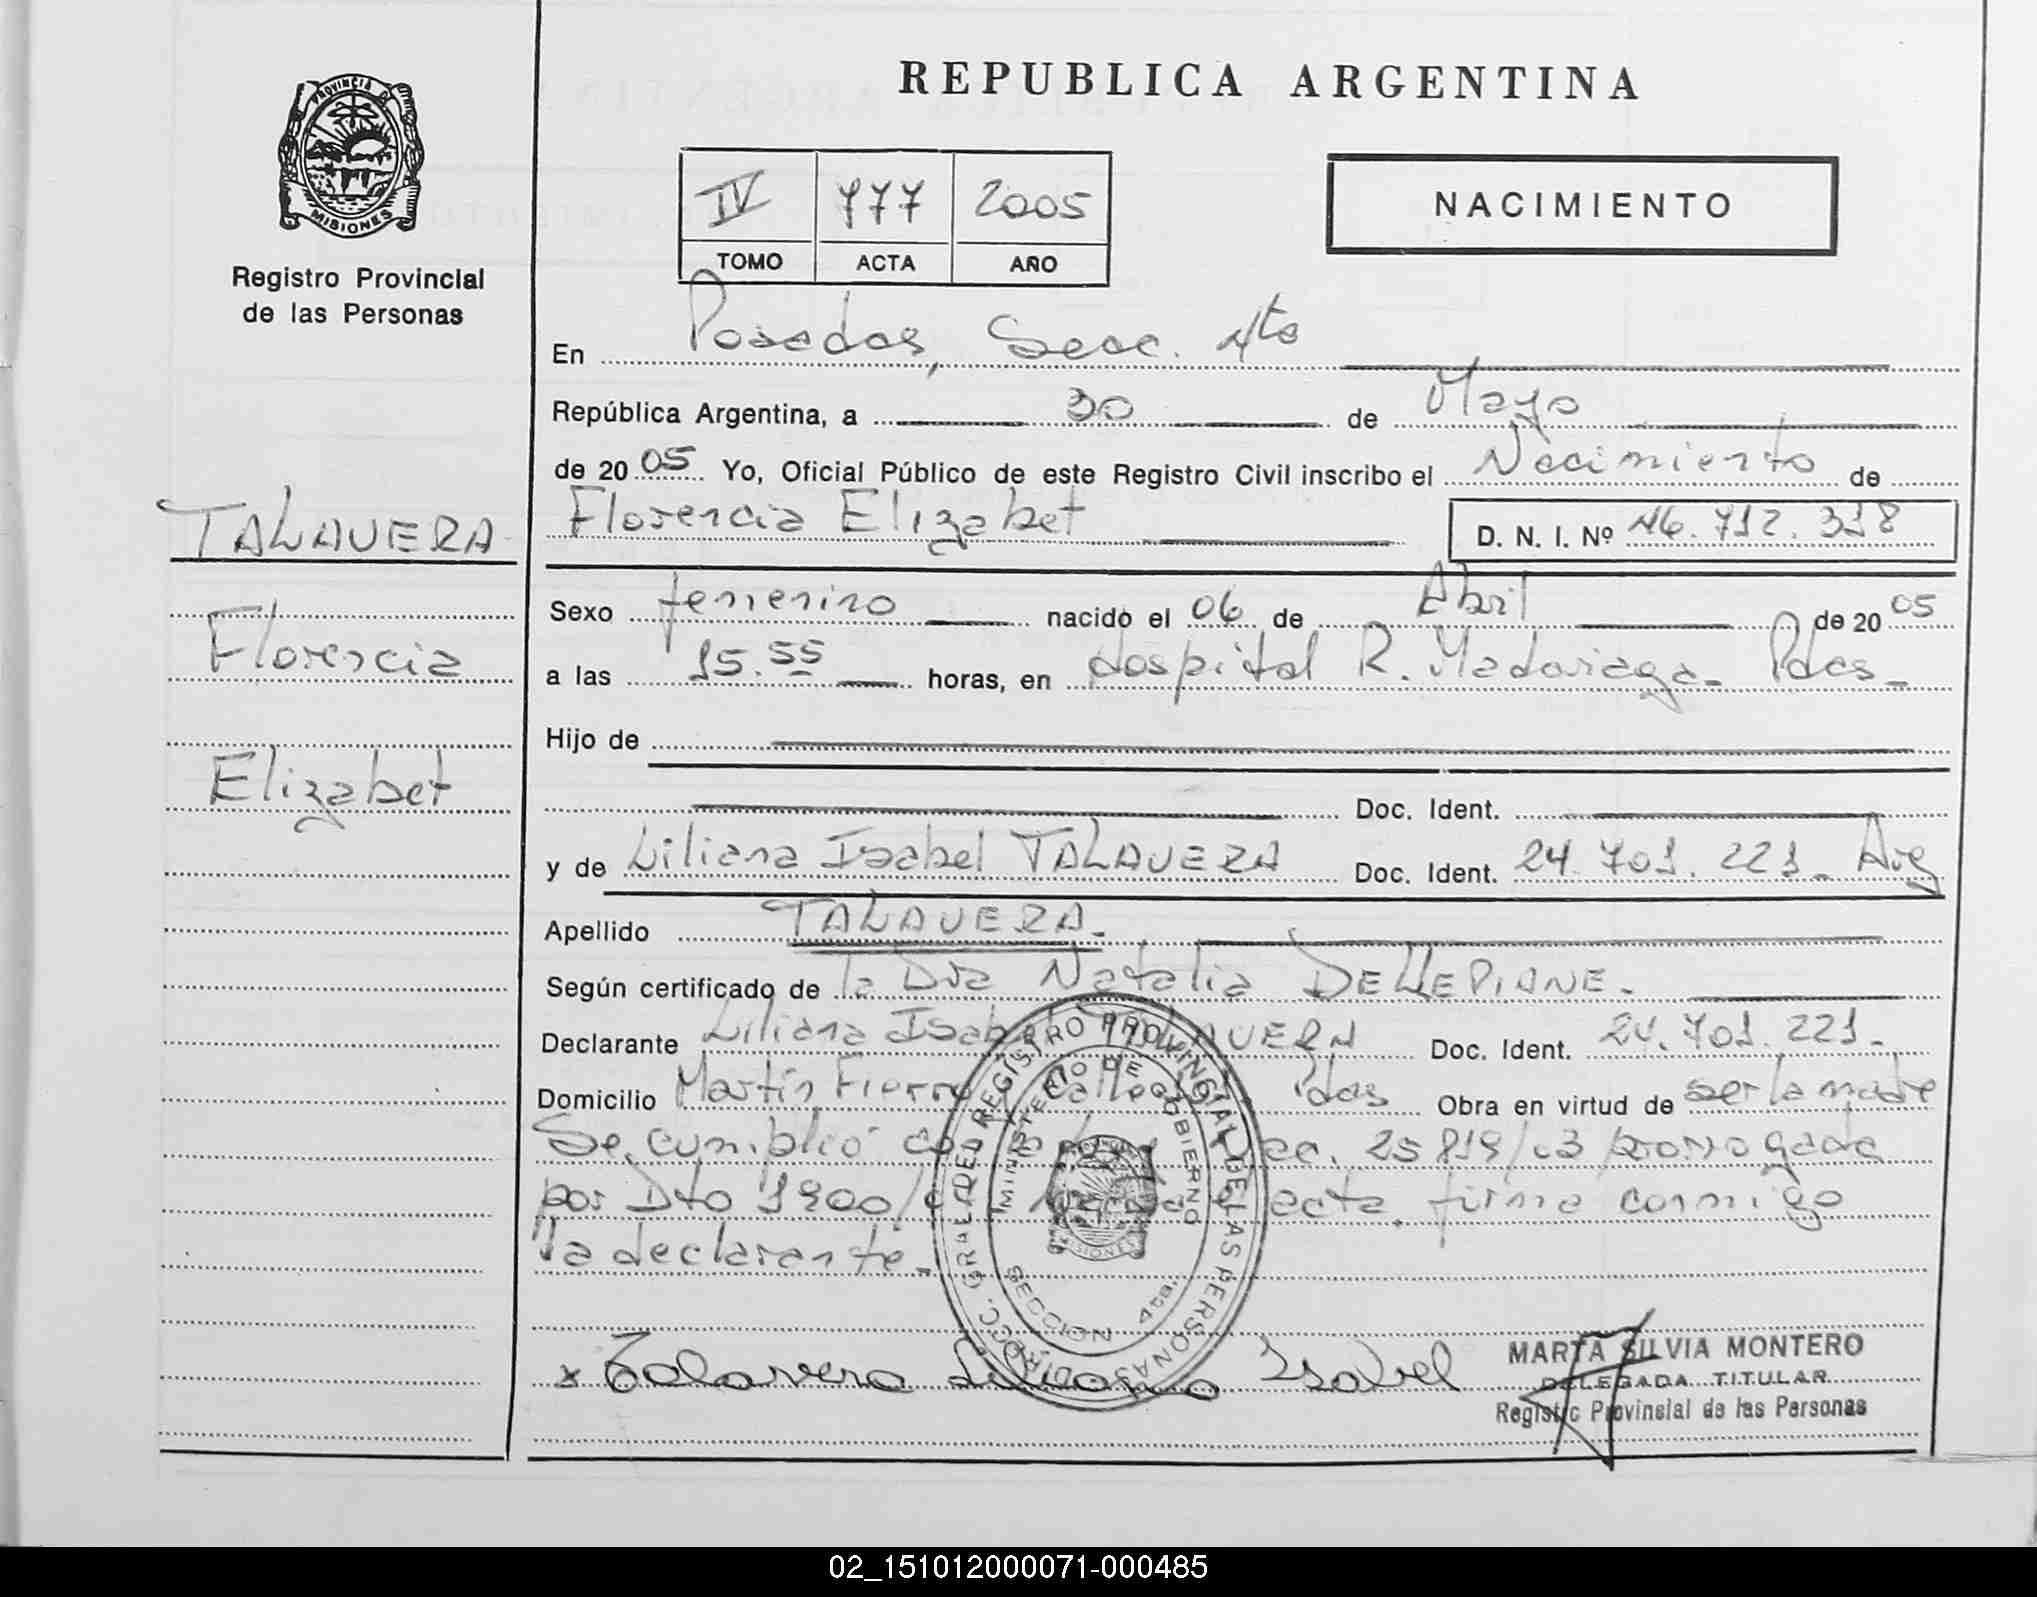 REPUBLICA ARGENTINA
PROVINCIA DE
MISIONES
Registro Provincial
de las Personas
IV 777 2005
TOMO ACTA AÑO
NACIMIENTO
En Posadas, Secc. 4ta
República Argentina, a 30 de Mayo
de 2005 Yo, Oficial Público de este Registro Civil inscribo el Nacimiento de
TALAVERA
Florencia Elizabet D. N. I. Nº 46.712.318
Sexo femenino nacido el 06 de Abril de 2005
Florencia
a las 15.55 horas, en Hospital R. Madariaga - Pdas -
Hijo de
Elizabet
Doc. Ident.
y de Liliana Isabel TALAVERA Doc. Ident. 24.701.221 - Arg
Apellido TALAVERA.
Según certificado de la Dra Natalia DELLEPIANE.
Declarante Liliana Isabel TALAVERA Doc. Ident. 24.701.221.
Domicilio Martín Fierro Pdas Obra en virtud de ser la madre
Se cumplió 25819/03 prorrogada
por Dto 1900/ acta firma conmigo
la declarante.
REGISTRO PROVINCIAL DE LAS PERSONAS
MINISTERIO DE GOBIERNO
MISIONES
SECCION 4ta.
x Talavera Liliana Isabel
MARTA SILVIA MONTERO
DELEGADA TITULAR
Registro Provincial de las Personas
02_151012000071-000485